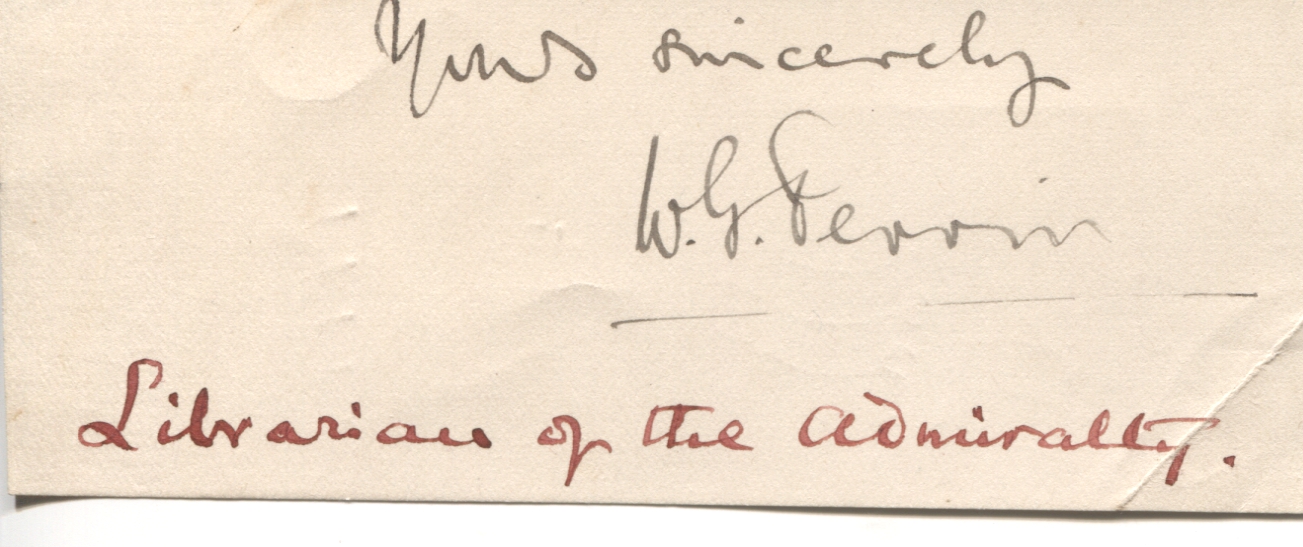 Yours sincerely
W.G. Perrin
Librarian of the Admiralty.